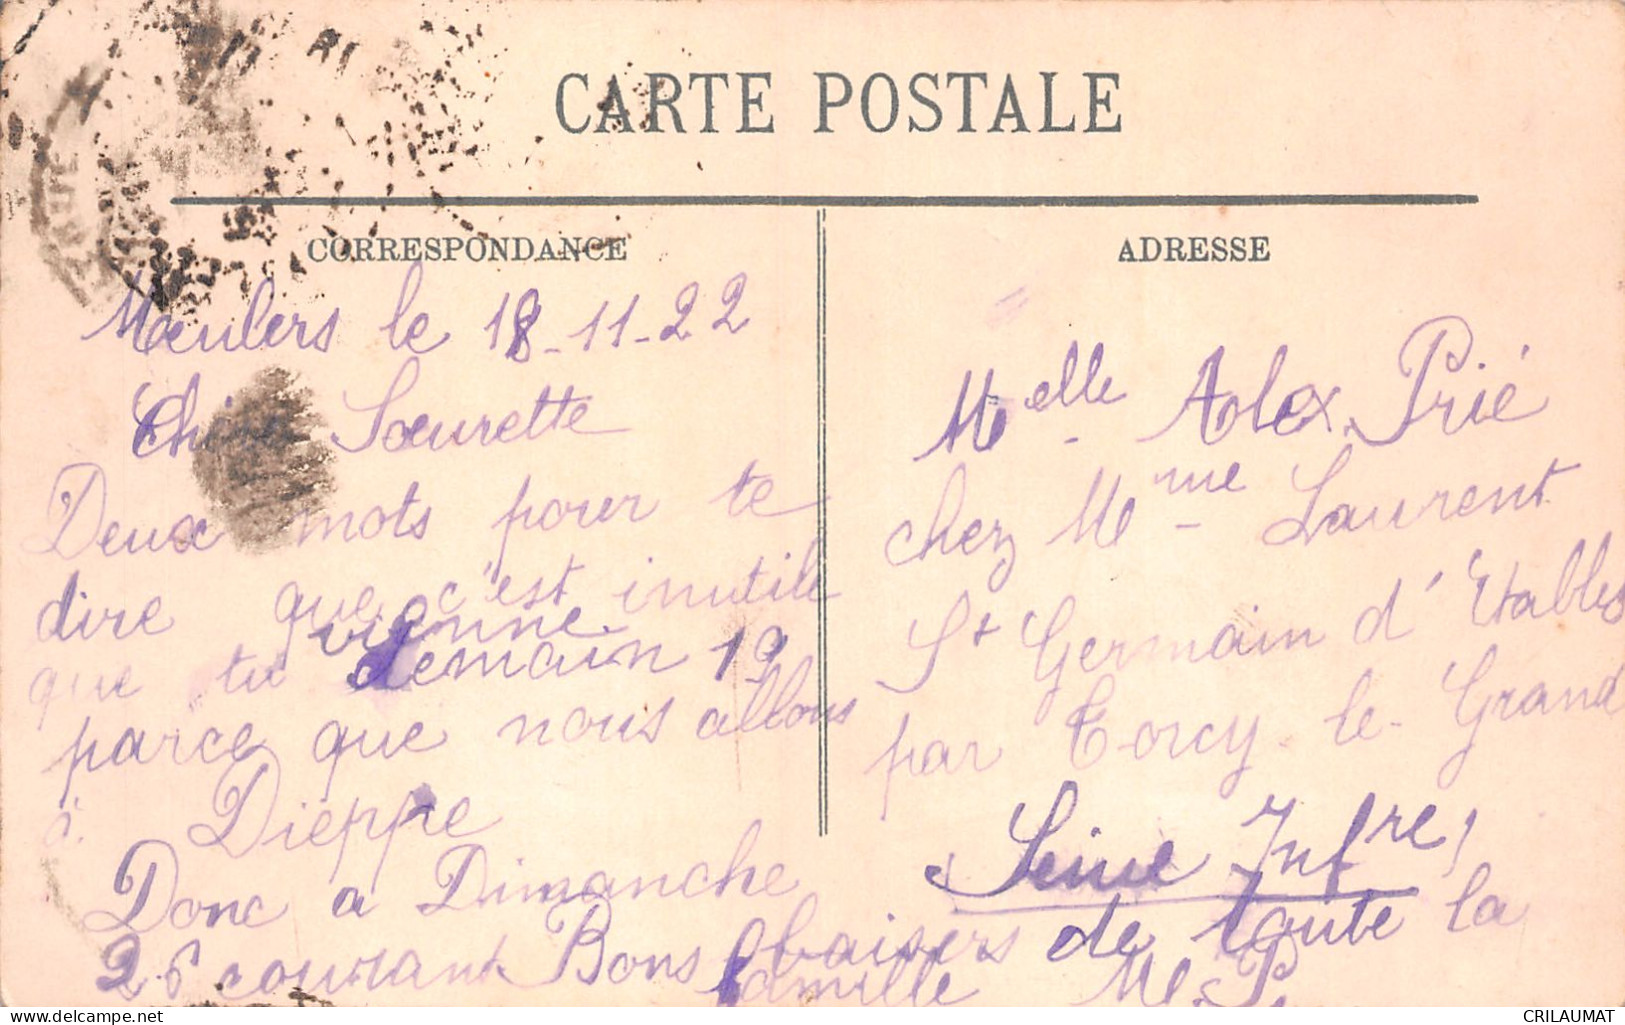 CARTE POSTALE
CORRESPONDANCE
Meulers le 18-11-22
Chère Sœurette
Deux mots pour te
dire que c'est inutile
que tu vienne demain 19
parce que nous allons
à Dieppe
Donc a Dimanche
26 courant Bons baisers de toute la
famille M. P.
ADRESSE
Melle Alex Prié
chez Mme Laurent
St Germain d'Etables
par Torcy-le-Grand
Seine Infre
CRILAUMAT